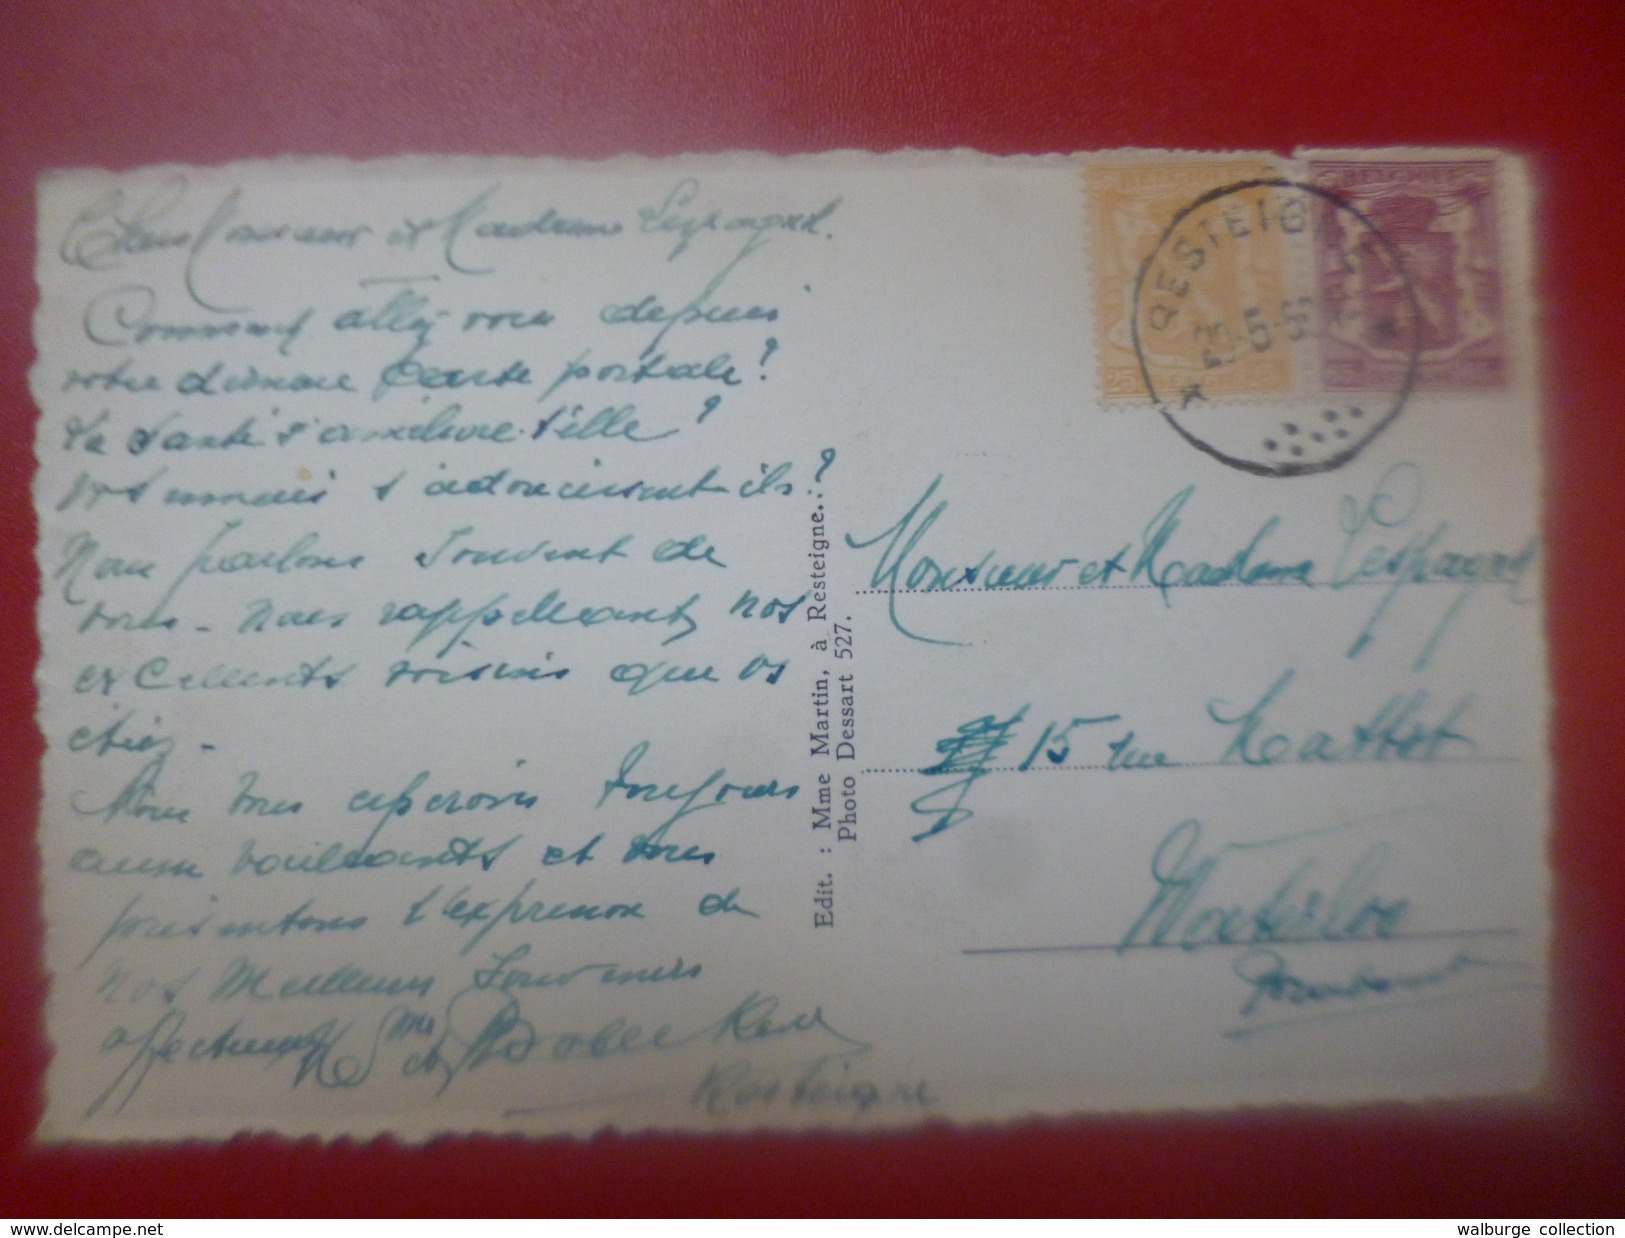 Chers Monsieur et Madame Lespagnol.
Comment allez vous depuis
votre dernière Carte postale?
La Santé s'améliore-t'elle?
Vos ennuis s'adoucissent-ils?
Nous parlons souvent de
vous - Nous rappellant, nos
excellents voisins que vs
étiez -
Nous vous espérons toujours
aussi vaillants et vous
présentons l'expression de
nos Meilleurs Souvenirs
affectueux
Resteigne
Edit. : Mme Martin, à Resteigne.
Photo Dessart 527.
RESTEIG
BELGIQUE
25
Monsieur et Madame Lespagnol
15 rue
Waterloo
delcampe.net
walburge collection